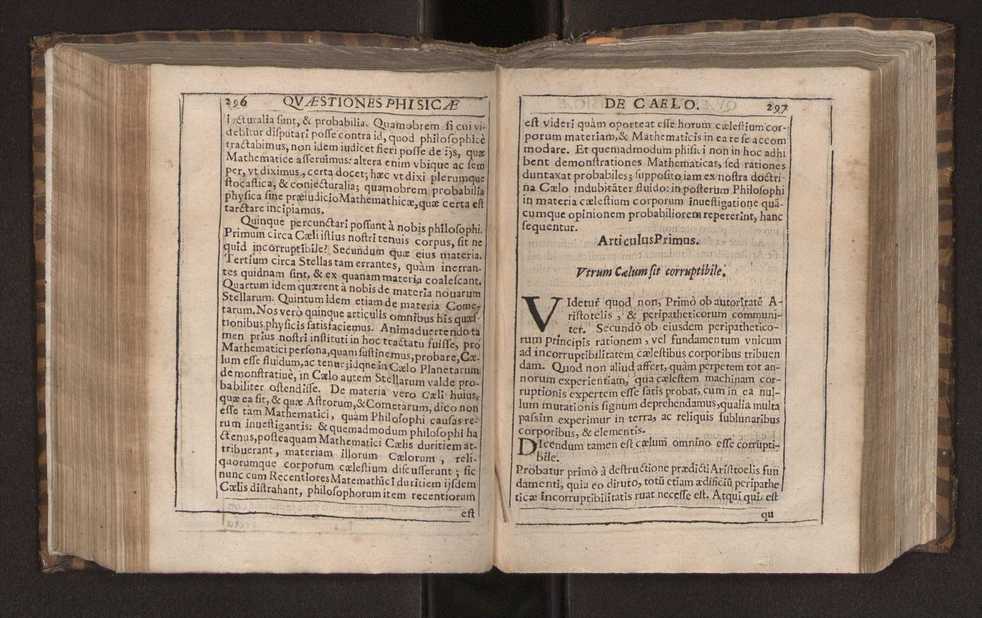 296 QVÆSTIONES PHISICÆ
iecturalia sunt, & probabilia. Quamobrem si cui vi-
debitur disputari posse contra id, quod philosophicè
tractabimus, non idem iudicet fieri posse de ijs, quæ
Mathematice asseruimus: altera enim vbique ac sem
per, vt diximus, certa docet; hæc vt dixi plerumque
stocastica, & coniecturalia; quamobrem probabilia
physica sine præiudicio Mathemathicæ, quæ certa est
tarctare incipiamus.
Quinque percunctari possunt à nobis philosophi.
Primum circa Cæli istius nostri tenuis corpus, sit ne
quid incorruptibile? Secundum quæ eius materia.
Tertium circa Stellas tam errantes, quàm inerran-
tes quidnam sint, & ex quanam materia coalescant.
Quartum idem quærent à nobis de materia nouarum
Stellarum. Quintum idem etiam de materia Come-
tarum. Nos verò quinque articulis omnibus his quæs-
tionibus physicis satisfaciemus. Animaduertendo ta
men prius nostri instituti in hoc tractatu fuisse, pro
Mathematici persona, quam sustinemus, probare, Cæ-
lum esse fluidum, ac tenue; idque in Cælo Planetarum
demonstratiuè, in Cælo autem Stellarum valde pro-
babiliter ostendisse. De materia vero Cæli huius,
quæ ea sit, & quæ Astrorum, & Cometarum, dico non
esse tam Mathematici, quàm Philosophi causas re-
rum inuestigantis: & quemadmodum philosophi ha
ctenus, posteaquam Mathematici Cælis duritiem at-
tribuerant, materiam illorum Cælorum, reli-
quorumque corporum cælestium discusserunt; sic
nunc cum Recentiores Matemathici duritiem ijsdem
Cælis distrahant, philosophorum item recentiorum
est
DE CAELO. 297
est videri quàm oporteat esse horum cælestium cor-
porum materiam, & Mathematicis in ea re se accom
modare. Et quemadmodum phisici non in hoc adhi
bent demonstrationes Mathematicas, sed rationes
duntaxat probabiles; supposito iam ex nostra doctri
na Cælo indubitãter fluido: in posterum Philosophi
in materia cælestium corporum inuestigatione quã-
cumque opinionem probabiliorem repererint, hanc
sequentur.
Articulus Primus.
Vtrum Cælum sit corruptibile.
VIdetur quod non, Primò ob autoritatẽ A-
ristotelis, & peripatheticorum communi-
ter. Secundò ob eiusdem peripathetico-
rum principis rationem, vel fundamentum vnicum
ad incorruptibilitatem cælestibus corporibus tribuen
dam. Quod non aliud assert, quàm perpetem tot an-
norum experientiam, qua cælestem machinam cor-
ruptionis expertem esse satis probat, cum in ea nul-
lum mutationis signum deprehendamus, qualia multa
passim experimur in terra, ac reliquis sublunaribus
corporibus, & elementis.
DIcendum tamen est cælum omnino esse corrupti-
bile.
Probatur primò à destructione prædicti Aristoelis fun
damenti, quia eo diruto, totũ etiam ædificiũ peripathe
ticæ incorruptibilitatis ruat necesse est. Atqui qui est
qu